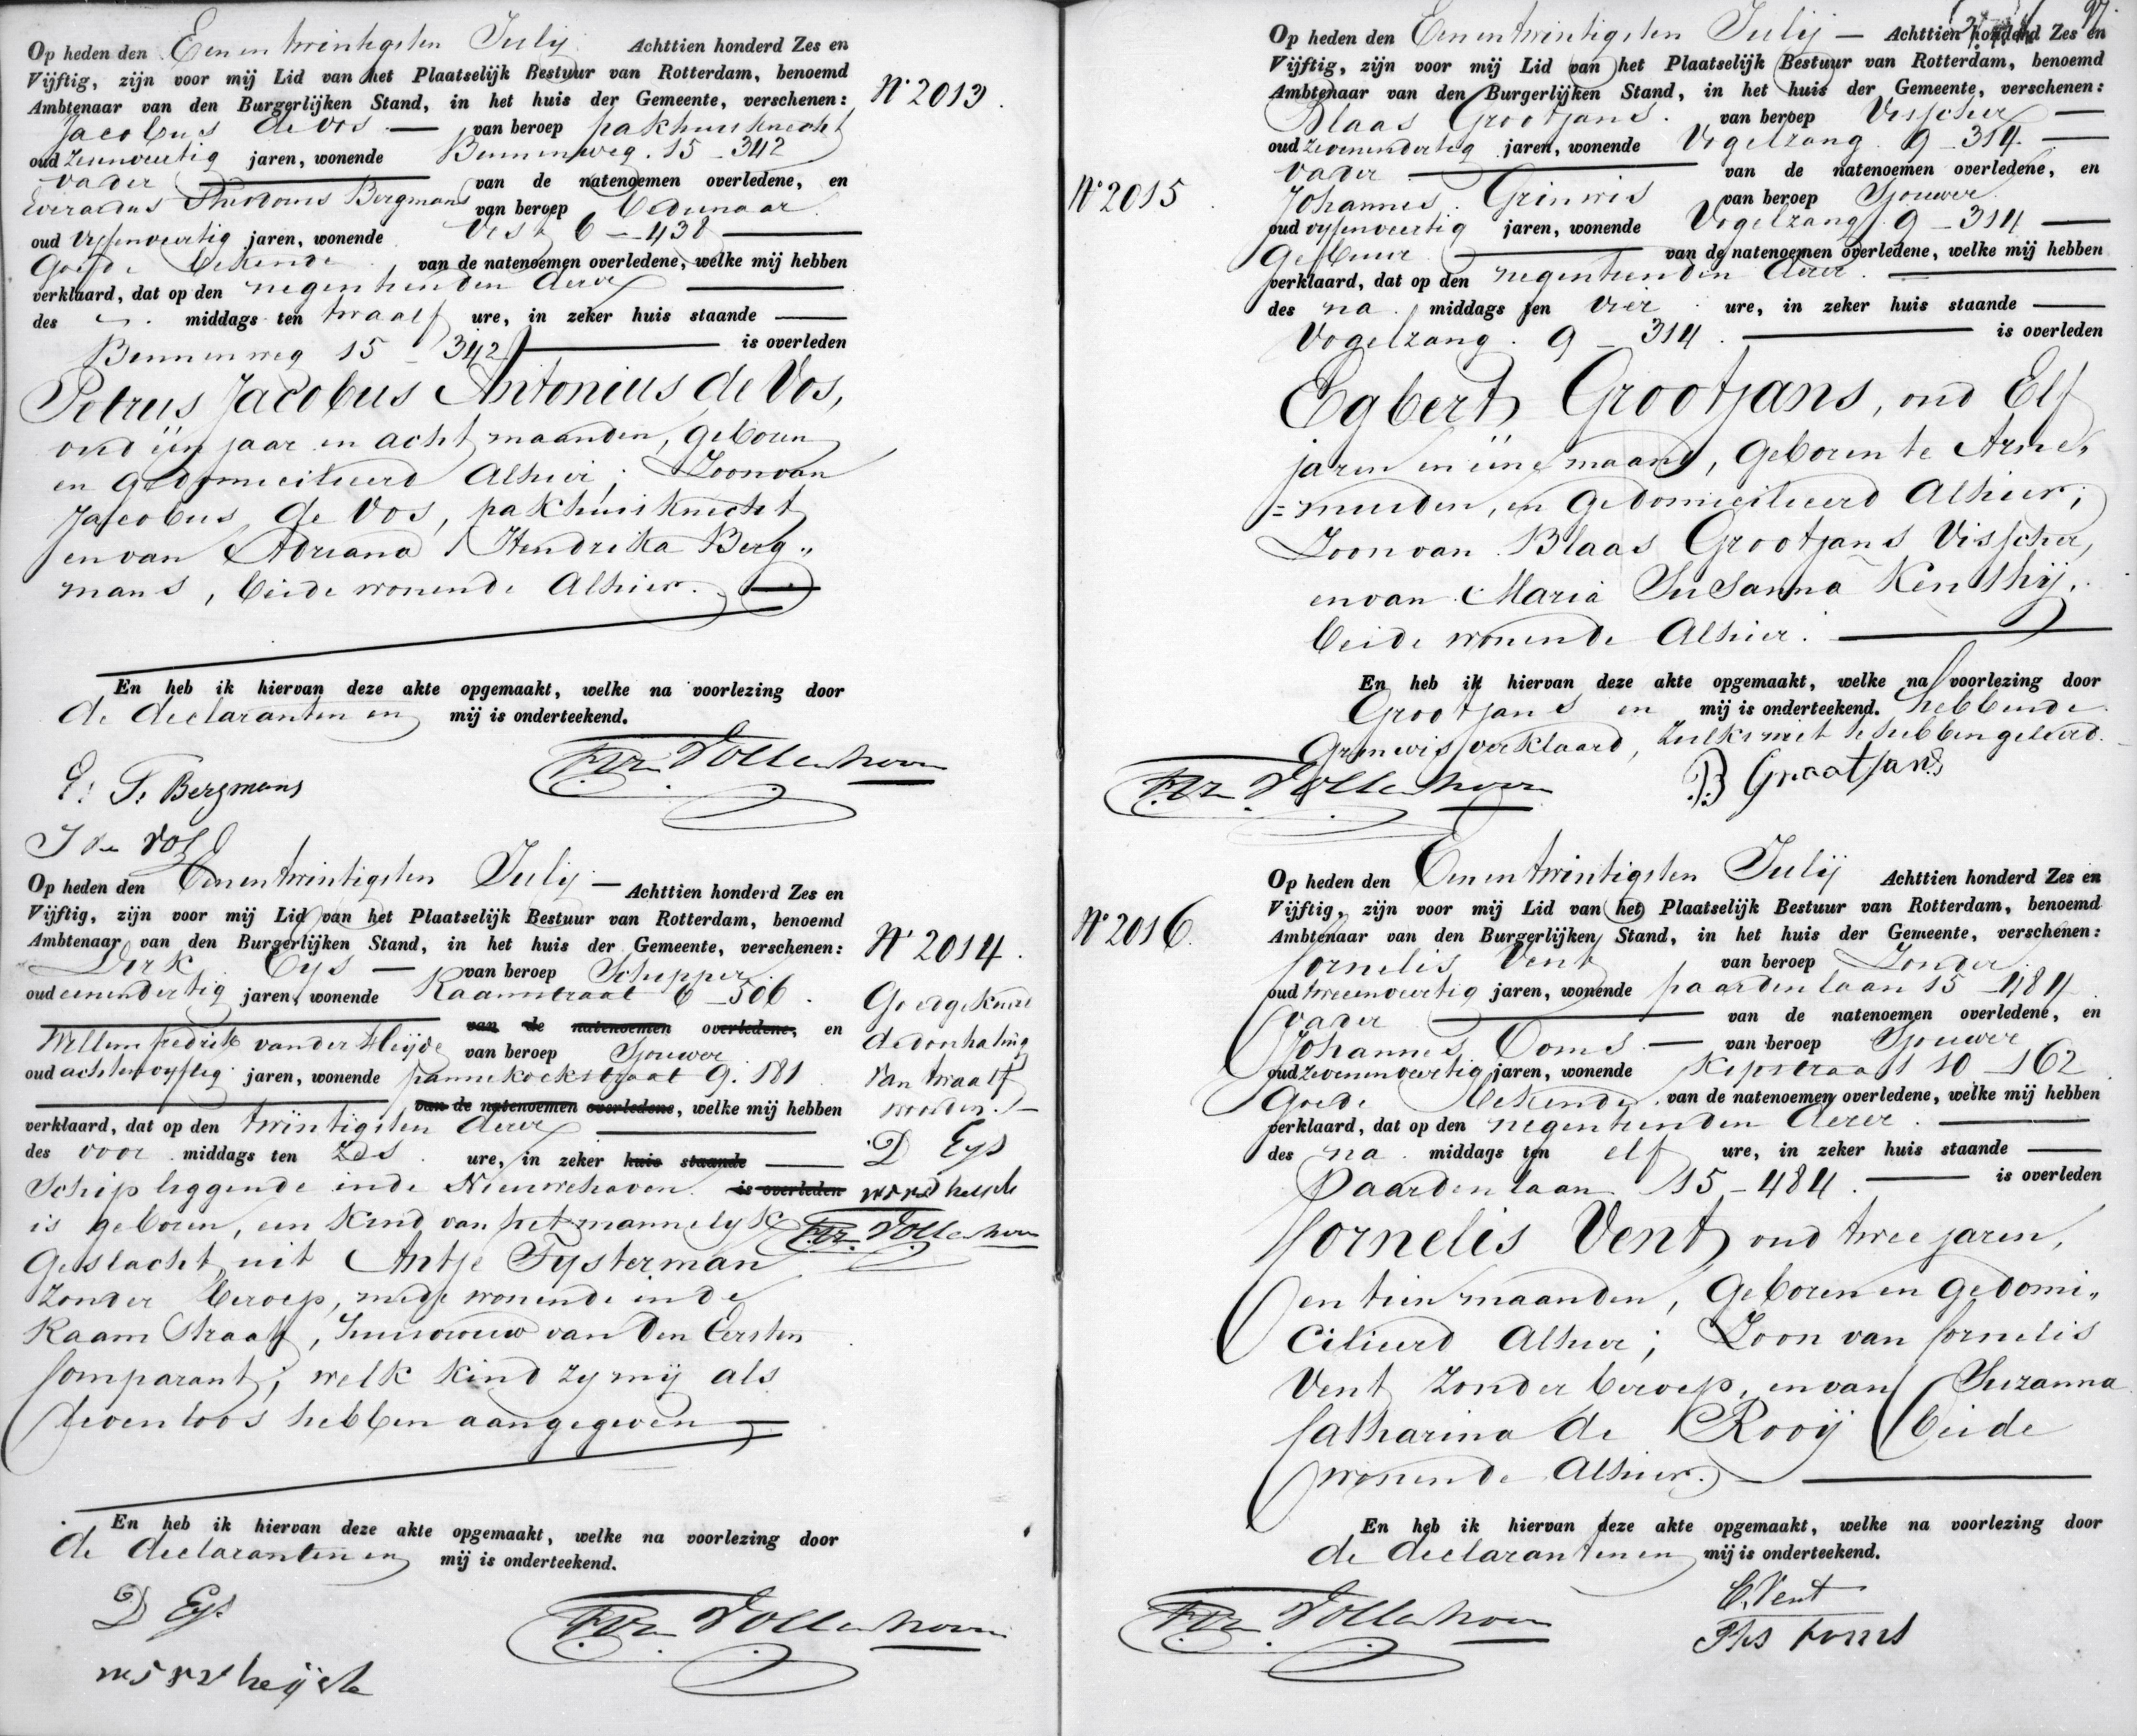 Op heden den Eenentwintigsten Julij Achttien honderd Zes en
Vijftig, zijn voor mij Lid van het Plaatselijk Bestuur van Rotterdam, benoemd
Ambtenaar van den Burgerlijken Stand, in het huis der Gemeente, verschenen:
Jacobus de Vos — van beroep pakhuisknecht
oud zesenveertig jaren, wonende Binnenweg. 15 - 342
vader van de natenoemen overledene, en
Everardus Theodorus Bergmans van beroep bedienaar
oud Vyfenveertig jaren, wonende Vest 6 - 438
Goede bekende van de natenoemen overledene, welke mij hebben
verklaard, dat op den negentienden dezer
des middags ten twaalf ure, in zeker huis staande
Binnenweg 15 - 342 is overleden
Petrus Jacobus Antonius de Vos,
oud één jaar en acht maanden, geboren
en gedomicilieerd Alhier; Zoon van
Jacobus de Vos, pakhuisknecht
en van Adriana Hendrika Berg„
mans, beide wonende Alhier.
En heb ik hiervan deze akte opgemaakt, welke na voorlezing door
de declaranten en mij is onderteekend.
E. T. Bergmans
J de Vos
N° 2013.
Op heden den Eenentwintigsten Julij — Achttien honderd Zes en
Vijftig, zijn voor mij Lid van het Plaatselijk Bestuur van Rotterdam, benoemd
Ambtenaar van den Burgerlijken Stand, in het huis der Gemeente, verschenen:
Dirk Eys — van beroep Schipper
oud eenendertig jaren, wonende Raamstraat 6 - 506.
van de natenoemen overledene, en
Willem fredrik van der Heijde van beroep Sjouwer
oud achtenvyftig jaren, wonende pannekoekstraat 9. 181
van de natenoemen overledene, welke mij hebben
verklaard, dat op den twintigsten dezer
des voor middags ten Zes ure, in zeker huis staande
Schip liggende inde Nieuwehaven. is overleden
is geboren, een kind van het mannelyk
Geslacht uit Antje Tysterman
Zonder beroep, mede wonende inde
Raamstraat, huisvrouw van den Eersten
Comparant; welk kind zy mij als
levenloos hebben aangegeven
En heb ik hiervan deze akte opgemaakt, welke na voorlezing door
de declaranten en mij is onderteekend.
D Eys
N° 2014.
Goedgekeurd
de doorhaling
van twaalf
woorden. —
D Eys
Op heden den Eenentwintigsten Julij — Achttien honderd Zes en
Vijftig, zijn voor mij Lid van het Plaatselijk Bestuur van Rotterdam, benoemd
Ambtenaar van den Burgerlijken Stand, in het huis der Gemeente, verschenen:
Blaas Grootjans. van beroep Visscher
oud zevenendertig jaren, wonende Vogelzang 9 - 314
vader van de natenoemen overledene, en
Johannes Grinwis van beroep Sjouwer
oud vyfenveertig jaren, wonende Vogelzang 9 - 314
Gebuur van de natenoemen overledene, welke mij hebben
verklaard, dat op den negentienden dezer
des na middags ten vier ure, in zeker huis staande
Vogelzang. 9 - 314. is overleden
Egbert Grootjans, oud Elf
jaren en ééne maand, geboren te Arne„
=muiden, en gedomicilieerd Alhier;
Zoon van Blaas Grootjans Visscher,
en van Maria Susanna
beide wonende Alhier.
En heb ik hiervan deze akte opgemaakt, welke na voorlezing door
Grootjans en mij is onderteekend. hebbende
Grinwis verklaard, zulks niet te hebben geleerd.
B Grootjans
N° 2015
Op heden den Eenentwintigsten Julij Achttien honderd Zes en
Vijftig, zijn voor mij Lid van het Plaatselijk Bestuur van Rotterdam, benoemd
Ambtenaar van den Burgerlijken Stand, in het huis der Gemeente, verschenen:
Cornelis Vent van beroep Zonder
oud tweeenveertig jaren, wonende paardenlaan 15 - 484
vader van de natenoemen overledene, en
Johannes Toms — van beroep Sjouwer
oud zevenenveertig jaren, wonende Kipstraat 10 - 162
Goede bekende van de natenoemen overledene, welke mij hebben
verklaard, dat op den negentienden dezer.
des na middags ten elf ure, in zeker huis staande
Paardenlaan 15 - 484. is overleden
Cornelis Vent oud twee jaren,
en tien maanden, Geboren en gedomi„
cilieerd Alhier; Zoon van Cornelis
Vent Zonder beroep, en van Suzanna
Catharina de Rooij beide
wonende Alhier.
En heb ik hiervan deze akte opgemaakt, welke na voorlezing door
de declaranten en mij is onderteekend.
C. Vent
N° 2016.